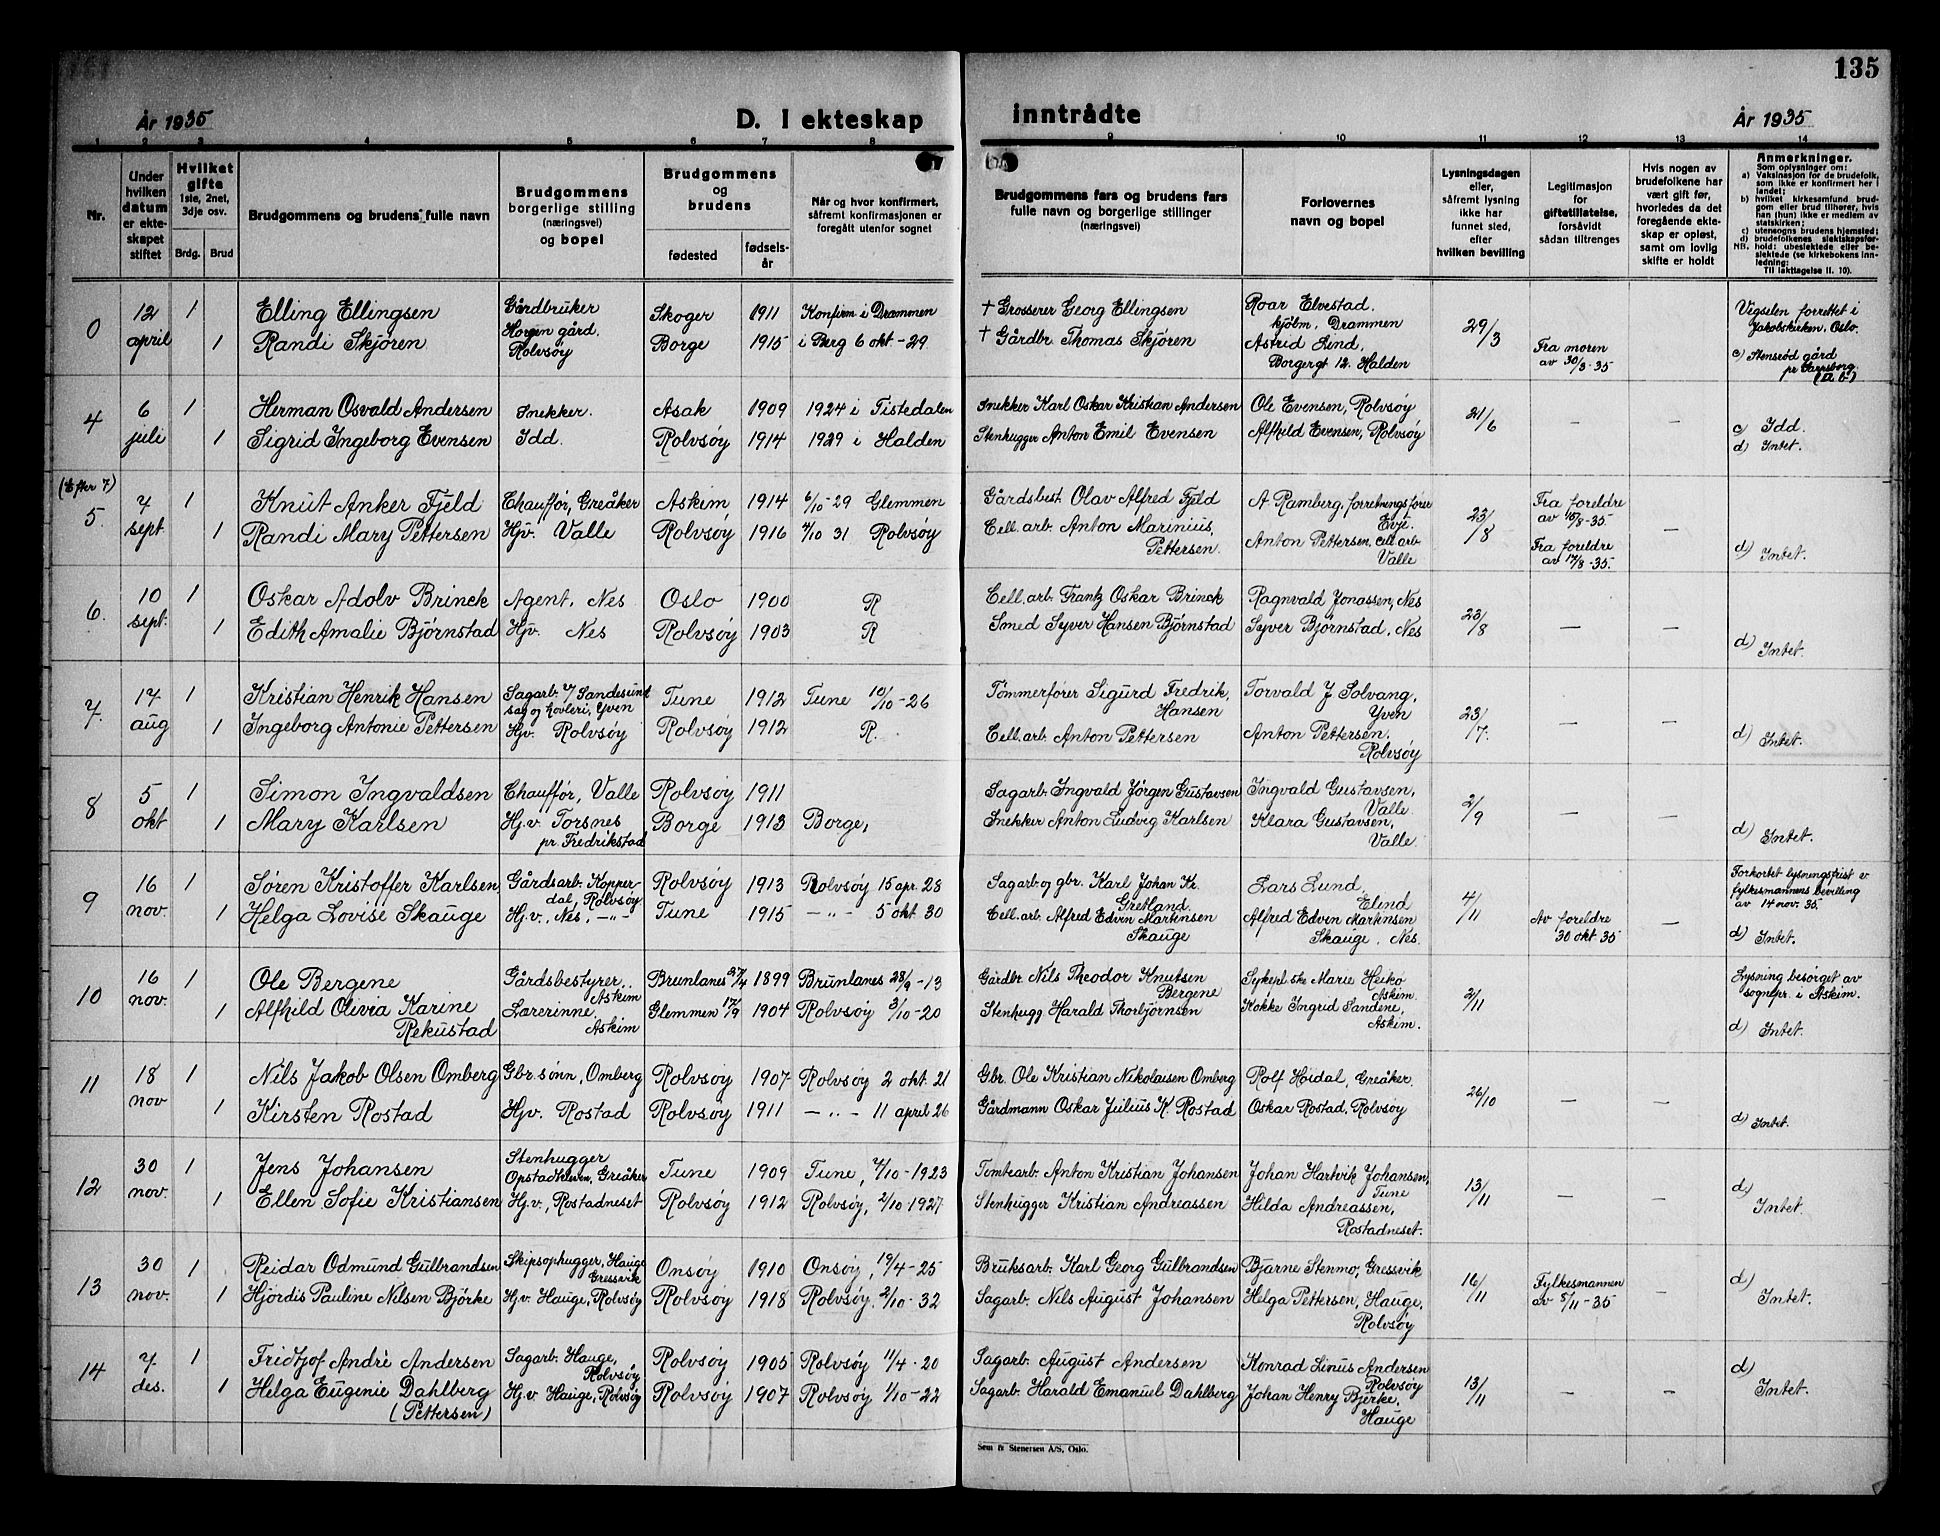 135
År 1935
D. I ekteskap
inntrådte
År 1935
1 2 3 4 5 6 7 8 9 10 11 12 13 14
Nr.
Under hvilken datum er ekteskapet stiftet
Hvilket gifte 1ste, 2net, 3dje osv.
Brdg. Brud
Brudgommens og brudens fulle navn
Brudgommens borgerlige stilling (næringsvei) og bopel
Brudgommens og brudens
fødested
fødsels-år
Når og hvor konfirmert, såfremt konfirmasjonen er foregått utenfor sognet
Brudgommens fars og brudens fars fulle navn og borgerlige stillinger (næringsvei)
Forlovernes navn og bopel
Lysningsdagen eller, såfremt lysning ikke har funnet sted, efter hvilken bevilling
Legitimasjon for giftetillatelse, forsåvidt sådan tiltrenges
Hvis nogen av brudefolkene har vært gift før, hvorledes da det foregående ekteskap er opløst, samt om lovlig skifte er holdt
Anmerkninger.
Som oplysninger om:
a) Vaksinasjon for de brudefolk, som ikke er konfirmert her i landet;
b) hvilket kirkesamfund brudgom eller brud tilhører, hvis han (hun) ikke er medlem av statskirken;
c) utensogns brudens hjemsted;
d) brudefolkenes slektskapsforhold: ubeslektede eller beslektede (se kirkebokens innledning:
NB. Til iakttagelse II. 10).
0 12 april 1 Elling Ellingsen Gårdbruker Horgen gård. Rolvsöy Skoger 1911 Konfirm i Drammen † Grosserer Georg Ellingsen Roar Elvestad. kjöbm. Drammen 29/3 Vigselen forrettet i Jakobskirken, Oslo.
1 Randi Skjören Borge 1915 i Berg 6 okt - 29 † Gårdbr Thomas Skjören Astrid Lund, Borgergt 12. Halden Fra moren av 30/3-35 – c) Stensröd gård pr
4 6 juli 1 Herman Osvald Andersen Snekker. Idd. Asak 1909 1924 i Tistedalen Snekker Karl Oskar Kristian Andersen Ole Evensen, Rolvsöy 21/6 – – c) Idd.
1 Sigrid Ingeborg Evensen Rolvsöy 1914 1929 i Halden Stenhugger Anton Emil Evensen Alfhild Evensen, Rolvsöy d) Intet.
(Efter 7)
5. 7 sept. 1 Knut Anker Fjeld Chauffør, Greåker Askim 1914 6/10-29 Glemmen Gårdsbest. Olav Alfred Fjeld A. Ramberg, forretningsfører Evje. 23/8 Fra foreldre av 18/8-35 –
1 Randi Mary Pettersen Hjv. Valle Rolvsöy 1916 4/10 31 Rolvsöy Cell. arb. Anton Marinius, Pettersen. Anton Pettersen, cell arb. Valle Fra foreldre av 17/8-35. d) Intet.
6. 10 sept. 1 Oskar Adolv Brinck Agent. Nes Oslo 1900 R Cell. arb. Frantz Oskar Brinck Ragnvald Jonassen, Nes 23/8 – –
1 Edith Amalie Bjørnstad Hjv. Nes Rolvsöy 1903 R Smed Syver Hansen Bjørnstad Syver Bjørnstad, Nes d) Intet.
7. 14 aug 1 Kristian Henrik Hansen Sagarb. v/ Sandesund sag og høvleri, Yven Tune 1912 Tune 10/10-26 Tömmerfører Sigurd Fredrik, Hansen Torvald J Solvang, Yven 23/7. – –
1 Ingeborg Antonie Pettersen Hjv. Rolvsöy Rolvsöy 1912 R. Cell. arb. Anton Pettersen Anton Pettersen. Rolvsöy d) Intet.
8 5 okt 1 Simon Ingvaldsen Chauffør, Valle Rolvsöy 1911 Sagarb. Ingvald Jörgen Gustavsen Ingvald Gustavsen, Valle 2/9 – –
1 Mary Karlsen Hj.v. Torsnes pr. Fredrikstad Borge 1913 Borge, Snekker Anton Ludvig Karlsen Klara Gustavsen, Valle. d) Intet.
9 16 nov. 1 Søren Kristoffer Karlsen Gårdsarb. Kopperdal, Rolvsöy Rolvsöy 1913 Rolvsöy 15 apr. 28 Sagarb. og gbr. Karl Johan Kr. Gretland. Lars Lund, Elind 4/11 Forkortet lysningsfrist v fylkesmannens bevilling av 14 nov. 35.
1 Helga Lovise Skauge Hj.v., Nes, –"– Tune 1915 –"– 5 okt 30 Cell. arb. Alfred Edvin Martinsen Skauge Alfred Edvin Martinsen Skauge. Nes Av foreldre 30 okt 35 – d) Intet.
10 16 nov. 1 Ole Bergene Gårdsbestyrer. Askim Brunlanes 27/4 1899 Brunlanes 28/9-13 Gårdbr. Nils Theodor Knutsen Bergene Sykepl. ske Marie Heiko Askim. 2/11 Lysning besørget av sognepr. i Askim.
1 Alfhild Olivia Karine Rekustad Lærerinne. Askim Glemmen 17/9 1904 Rolvsöy 3/10-20 Stenhugg Harald Thorbjørnsen Kokke Ingrid Sandene, Askim. d) Intet.
11 18 nov 1 Nils Jakob Olsen Omberg Gbr. sønn, Omberg Rolvsöy 1907 Rolvsöy 2 okt. 21 Gbr. Ole Kristian Nikolaisen Omberg Rolf Hoidal, Greåker. 26/10 – –
1 Kirsten Rostad Hjv. Rostad Rolvsöy 1911 –"– 11 april 26 Gårdmann Oskar Julius K. Rostad Oskar Rostad, Rolvsöy d) Intet.
12 30 nov. 1 Jens Johansen Stenhugger Opstadkleven, Greåker Tune 1909 Tune, 7/10-1923 Tomtearb. Anton Kristian Johansen Johan Hartvik Johansen, Tune 13/11 – – d)
1 Ellen Sofie Kristiansen Hj.v., Rostadneset Rolvsöy 1912 Rolvsöy, 2/10-1927 Stenhugger Kristian Andreassen Hilda Andreassen, Rostadneset. Intet.
13 30 nov. 1 Reidar Odmund Gulbrandsen Skipsophugger, Hauge Gressvik Onsöy 1910 Onsöy, 19/4-25 Bruksarb. Karl Georg Gulbrandsen Bjarne Stenmo, Gressvik 16/11 Fylkesmannen av 5/11-35 – d)
1 Hjördis Pauline Nilsen Bjørke Hj.v. Hauge, Rolvsöy Rolvsöy 1918 Rolvsöy. 2/10-32 Sagarb. Nils August Johansen Helga Pettersen, Hauge, Rolvsöy Intet.
14 7 des. 1 Fridtjof Andrè Andersen Sagarb. Hauge, Rolvsöy Rolvsöy 1905 Rolvsöy 11/4-20 Sagarb. August Andersen Konrad Linus Andersen Rolvsöy 13/11 – – d)
1 Helga Eugenie Dahlberg (Pettersen) Hj.v. Hauge, Rolvsöy Rolvsöy 1907 Rolvsöy 1/10-22 Sagarb. Harald Emanuel Dahlberg Johan Henry Bjerke, Hauge Intet.
Sem & Stenersen A/S, Oslo.